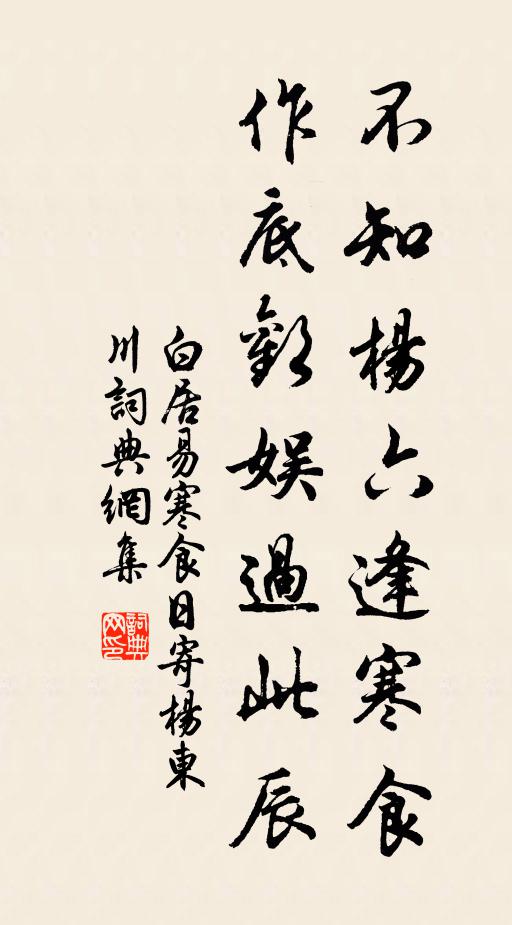 不知楊六逢寒食
作底歡娛過此辰
白居易寒食日寄楊東
川詞典網集
詞典网印